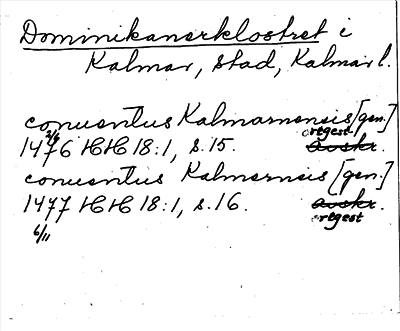 Dominikanerklostret i
Kalmar, stad, Kalmar l.
conuentus Kalmarnensis [gen.]
2/6 regest
1476 HH 18:1, s.15. avskr.
conuentus Kalmernsis [gen.]
1477 HH 18:1, s.16. avskr.
6/11 regest